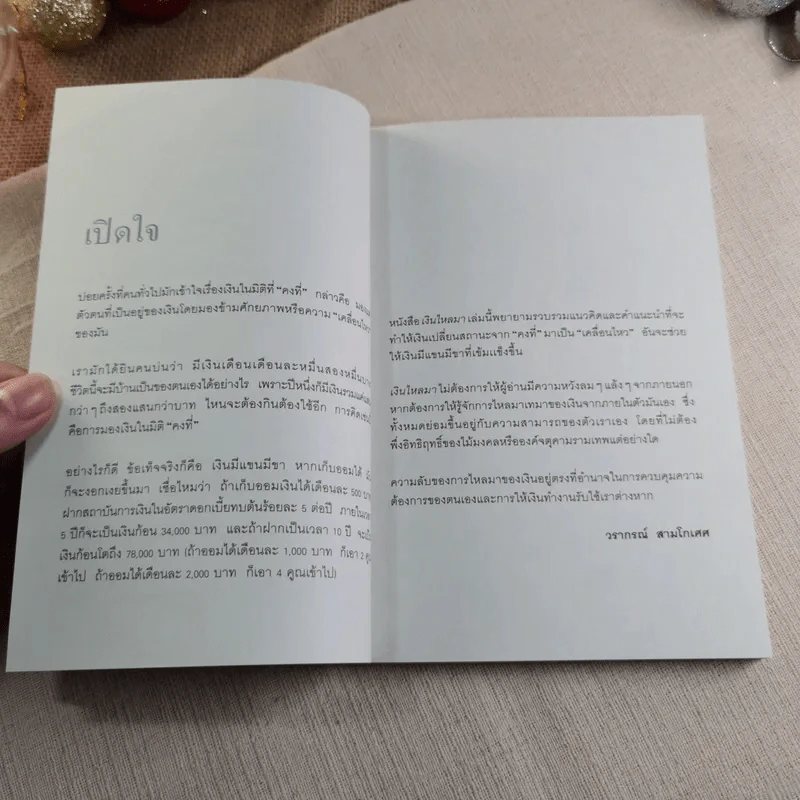 เปิดใจ
บ่อยครั้งที่คนทั่วไปมักเข้าใจเรื่องเงินในมิติที่ “คงที่” กล่าวคือ
ตัวตนที่เป็นอยู่ของเงินโดยมองข้ามศักยภาพหรือความ “เคลื่อนไหว”
ของมัน
เรามักได้ยินคนบ่นว่า มีเงินเดือนเดือนละหมื่นสองหมื่นบาท
ชีวิตนี้จะมีบ้านเป็นของตนเองได้อย่างไร เพราะปีหนึ่งก็มีเงินรวมแค่แสน
กว่า ๆ ถึงสองแสนกว่าบาท ไหนจะต้องกินต้องใช้อีก การคิดเช่นนี้
คือการมองเงินในมิติ “คงที่”
อย่างไรก็ดี ข้อเท็จจริงก็คือ เงินมีแขนมีขา หากเก็บออมได้
ก็จะงอกเงยขึ้นมา เชื่อไหมว่า ถ้าเก็บออมเงินได้เดือนละ 500 บาท
ฝากสถาบันการเงินในอัตราดอกเบี้ยทบต้นร้อยละ 5 ต่อปี ภายในเวลา
5 ปีก็จะเป็นเงินก้อน 34,000 บาท และถ้าฝากเป็นเวลา 10 ปี
เงินก้อนโตถึง 78,000 บาท (ถ้าออมได้เดือนละ 1,000 บาท ก็เอา 2
เข้าไป ถ้าออมได้เดือนละ 2,000 บาท ก็เอา 4 คูณเข้าไป)
หนังสือ เงินไหลมา เล่มนี้พยายามรวบรวมแนวคิดและคำแนะนำที่จะ
ทำให้เงินเปลี่ยนสถานะจาก “คงที่” มาเป็น “เคลื่อนไหว” อันจะช่วย
ให้เงินมีแขนมีขาที่เข้มแข็งขึ้น
เงินไหลมา ไม่ต้องการให้ผู้อ่านมีความหวังลม ๆ แล้ง ๆ จากภายนอก
หากต้องการให้รู้จักการไหลมาเทมาของเงินจากภายในตัวมันเอง ซึ่ง
ทั้งหมดย่อมขึ้นอยู่กับความสามารถของตัวเราเอง โดยที่ไม่ต้อง
พึ่งอิทธิฤทธิ์ของไม้มงคลหรือองค์จตุคามรามเทพแต่อย่างใด
ความลับของการไหลมาของเงินอยู่ตรงที่อำนาจในการควบคุมความ
ต้องการของตนเองและการให้เงินทำงานรับใช้เราต่างหาก
วรากรณ์ สามโกเศศ